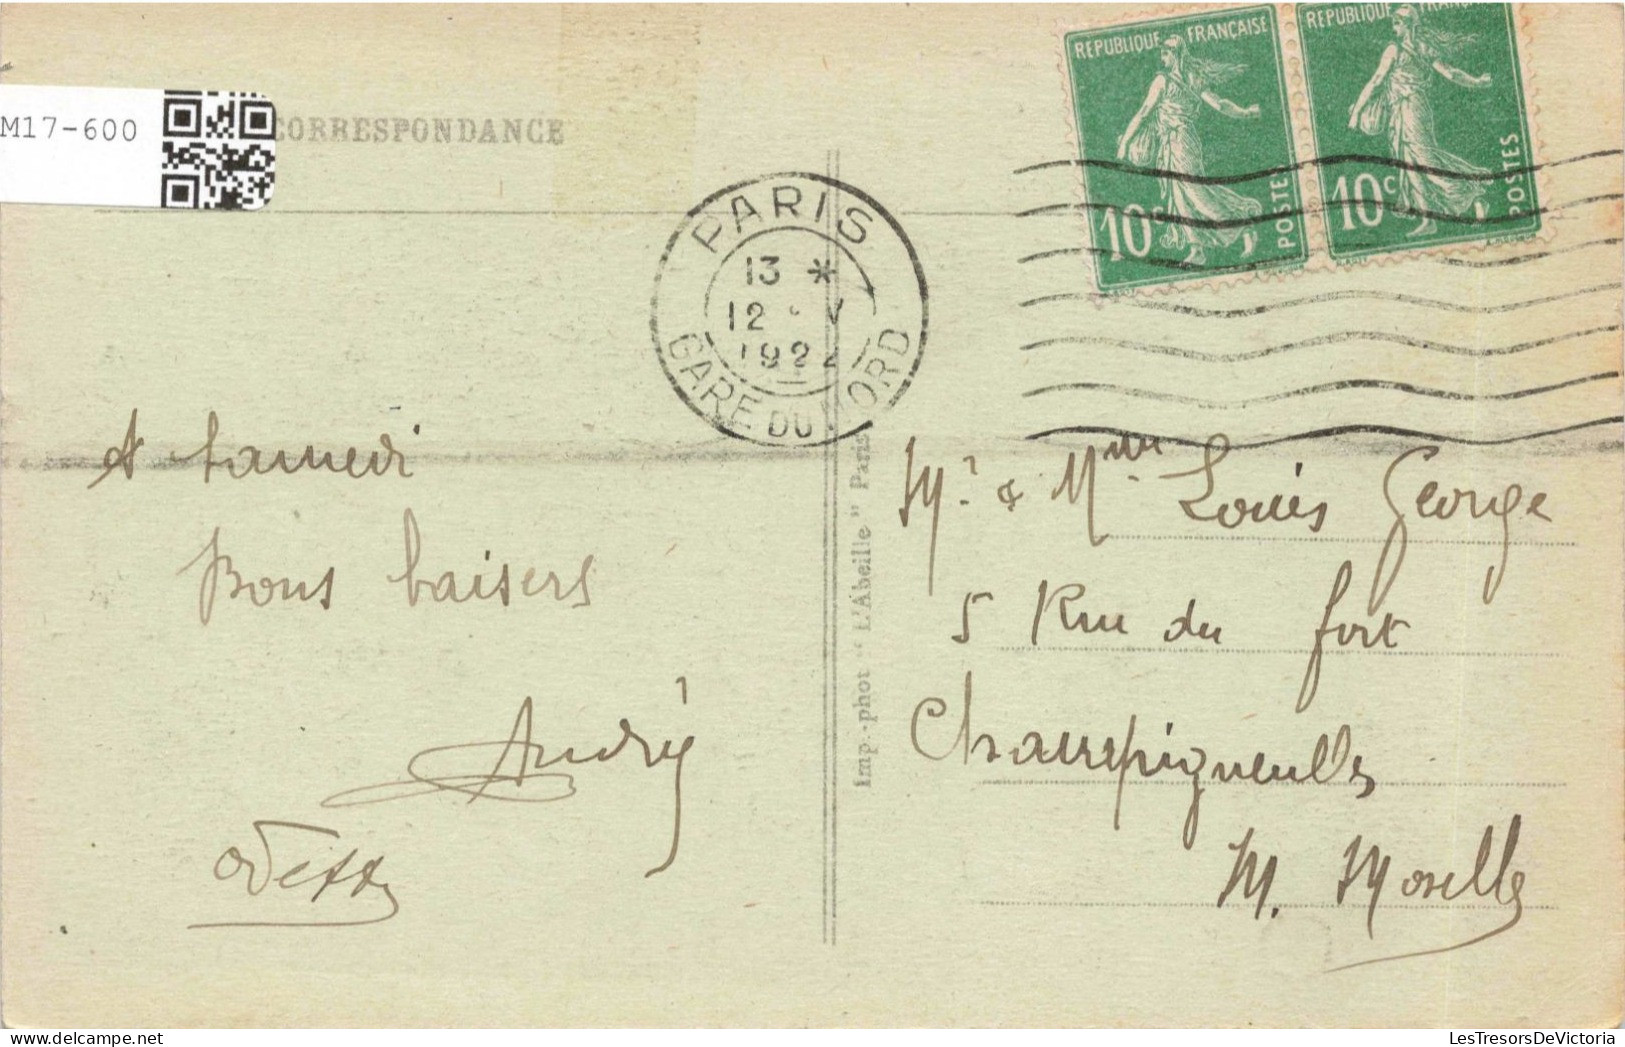 M17-600
CORRESPONDANCE
REPUBLIQUE FRANÇAISE
10c POSTES
REPUBLIQUE FRANÇAISE
10c POSTES
PARIS
13 *
12 - V
1922
GARE DU NORD
A samedi
Bons baisers
André
Odette
Imp.-phot "L'Abeille" Paris
Mr & Mme Louis George
5 Rue du fort
Champigneulles
M. Moselle
LesTresorsDeVictoria